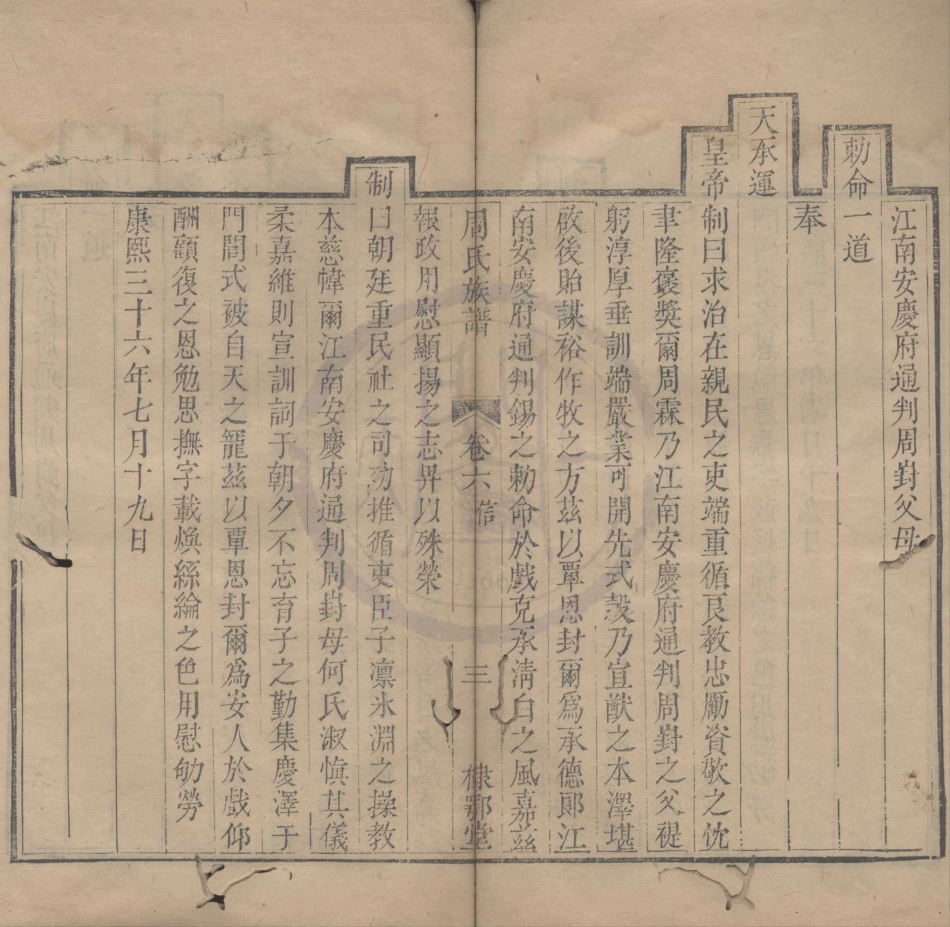 江南安慶府通判周崶父母
勅命一道
奉
天承運
皇帝
制曰求治在親民之吏端重循良教忠勵資敬之忱
聿隆褒獎爾周霖乃江南安慶府通判周崶之父褆
躬淳厚垂訓端嚴業可開先式穀乃宣猷之本澤堪
啟後貽謀裕作牧之方茲以覃恩封爾爲承德郎江
南安慶府通判錫之勅命於戲克承淸白之風嘉茲
周氏族譜 卷六 信 三 棣鄂堂
報政用慰顯揚之志畀以殊榮
制曰朝廷重民社之司功推循吏臣子凛氷淵之操教
本慈幃爾江南安慶府通判周崶母何氏淑愼其儀
柔嘉維則宣訓詞于朝夕不忘育子之勤集慶澤于
門閭式被自天之寵茲以覃恩封爾爲安人於戲仰
酬顧復之恩勉思撫字載煥絲綸之色用慰劬勞
康熙三十六年七月十九日